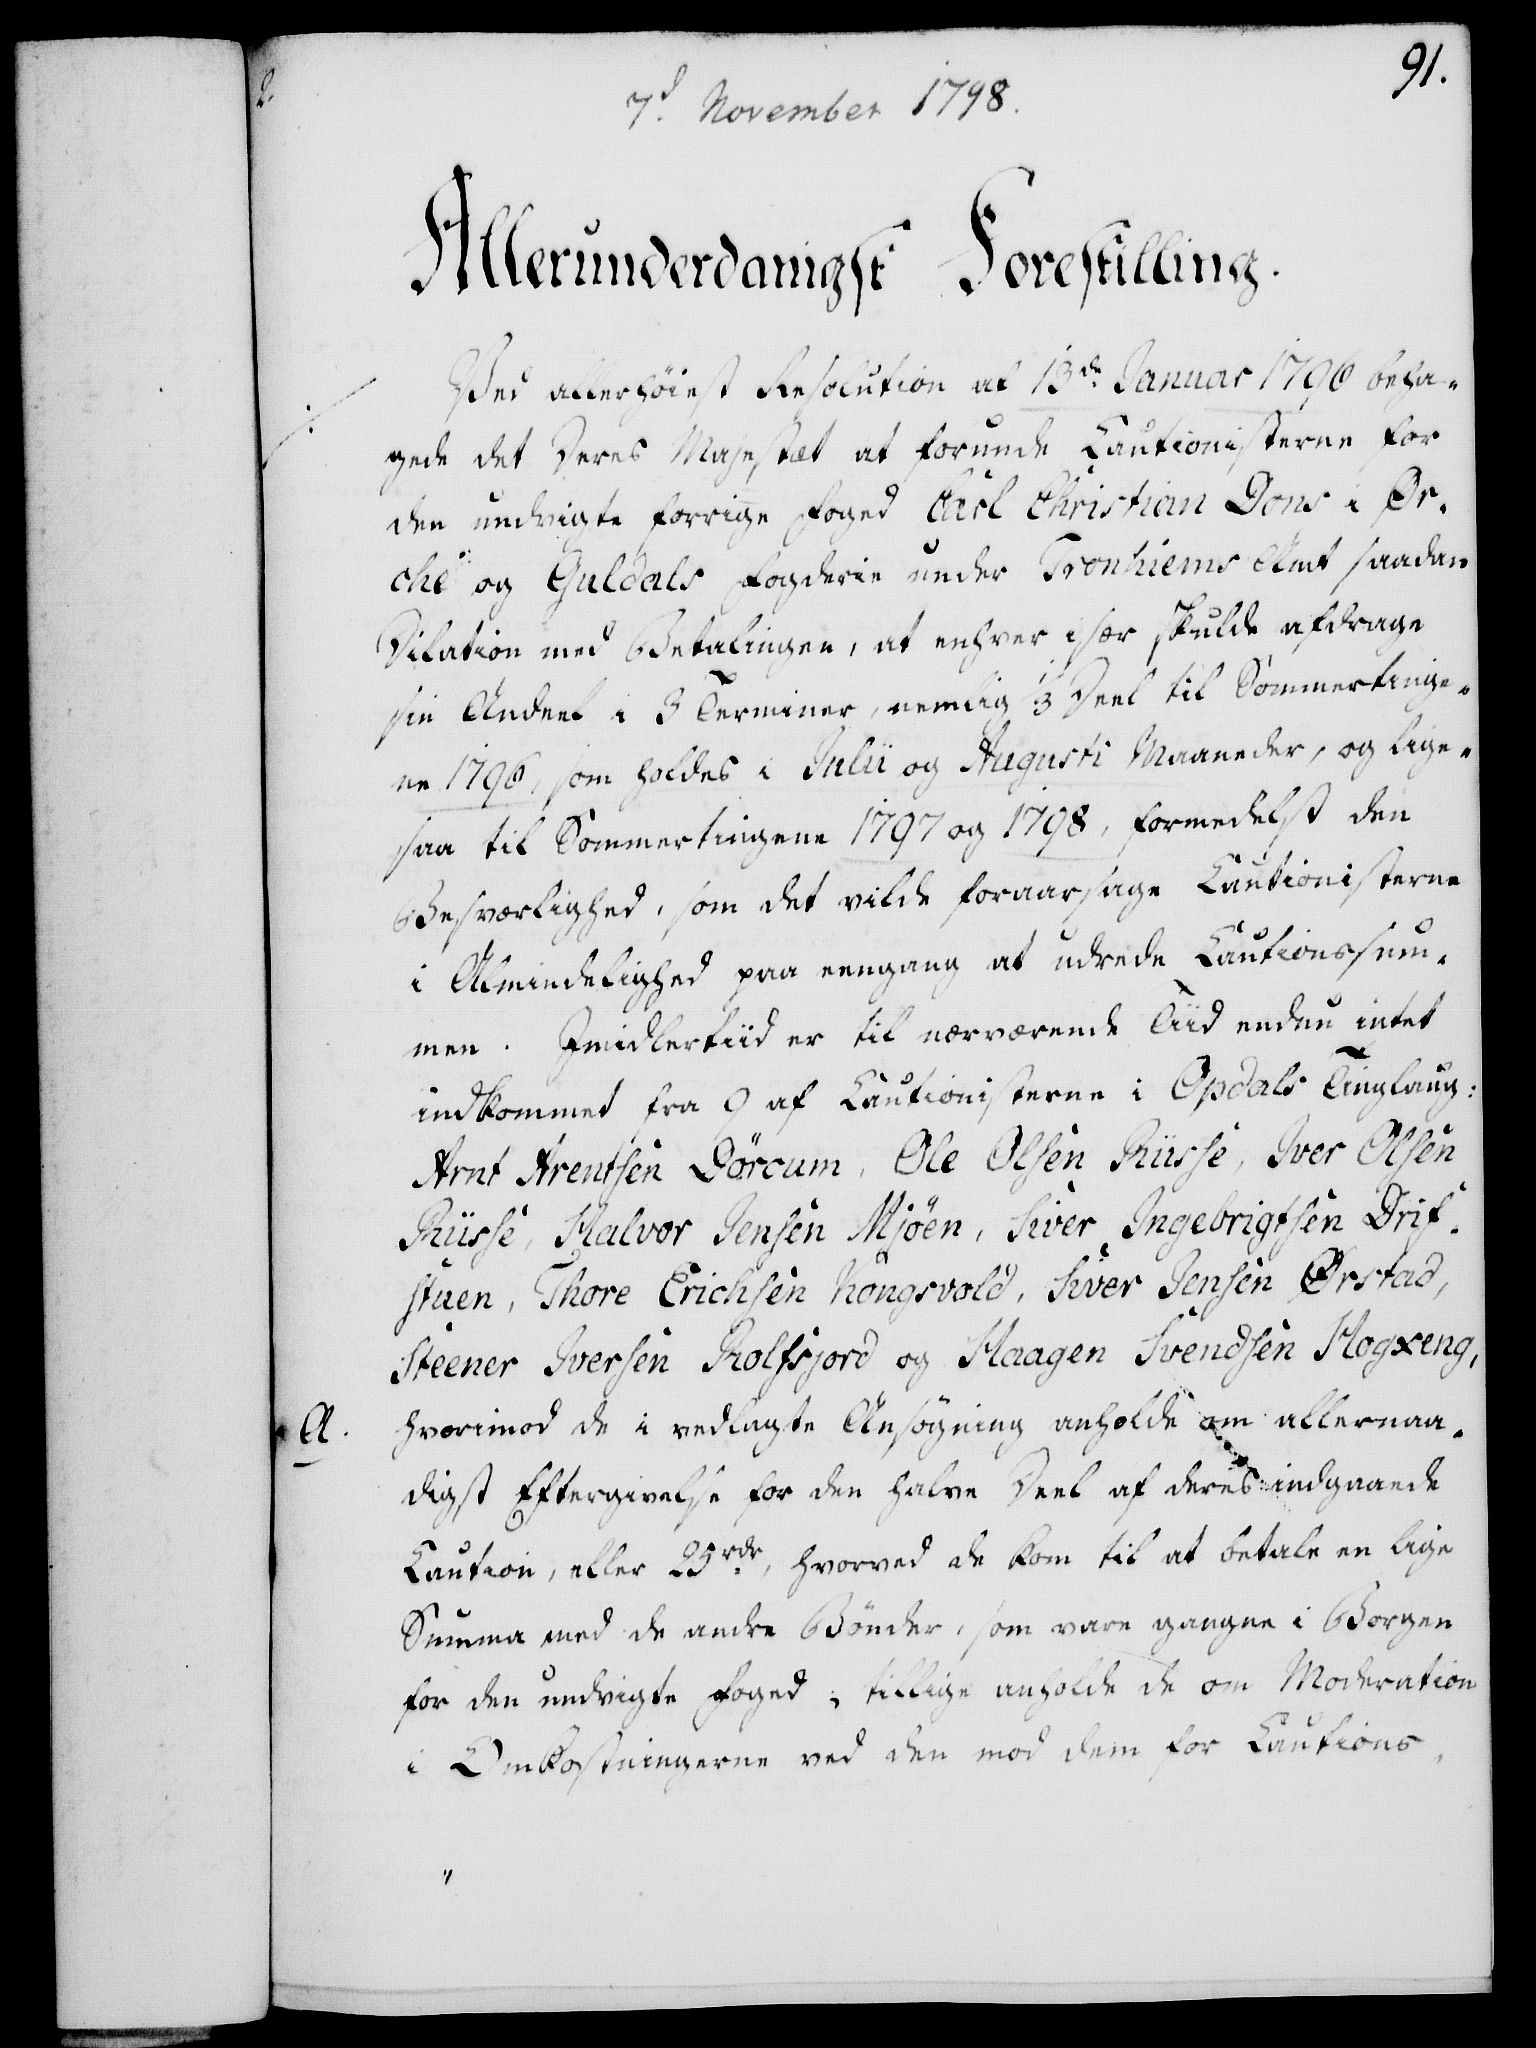 91.
7d November 1798.
Allerunderdanigst Forestilling.
Ved allerhöiest Resolution af 13de Januar 1796 beha-
gede det Deres Majestæt at forunde Cautionisterne for
den undvigte forrige Foged Carl Christian Dons i Ør-
che og Guldals Fogderie under Tronhiems Amt saadan
Dilation med Betalingen, at enhver især skulde afdrage
sin Andeel i 3 Terminer, nemlig 1/3 Deel til Sommertinge-
ne 1796, som holdes i Julii og Augusti Maaneder, og lige-
saa til Sommertingene 1797 og 1798, formedelst den
Besværlighed, som det vilde foraarsage Cautionisterne
i Almindelighed paa eengang at udrede Cautionssum-
men. Imidlertiid er til nærværende Tiid endnu intet
indkommet fra 9 af Cautionisterne i Opdals Tinglaug:
Arnt Arentsen Dörcum, Ole Olsen Riisse, Iver Olsen
Riisse, Halvor Jensen Mjöen, Siver Ingebrigtsen Drif-
stuen, Thore Erichsen Kongsvold, Siver Jensen Ørstad,
Steener Iversen Rolfsjord og Haagen Svendsen Hogxeng,
A. hvorimod de i vedlagte Ansögning anholde om allernaa-
digst Eftergivelse for den halve Deel af deres indgaaede
Caution, eller 25rdr, hvorved de kom til at betale en lige
Summa med de andre Bönder, som vare gangne i Borgen
for den undvigte Foged; tillige anholde de om Moderation
i Omkostningerne ved den mod dem for Cautions-